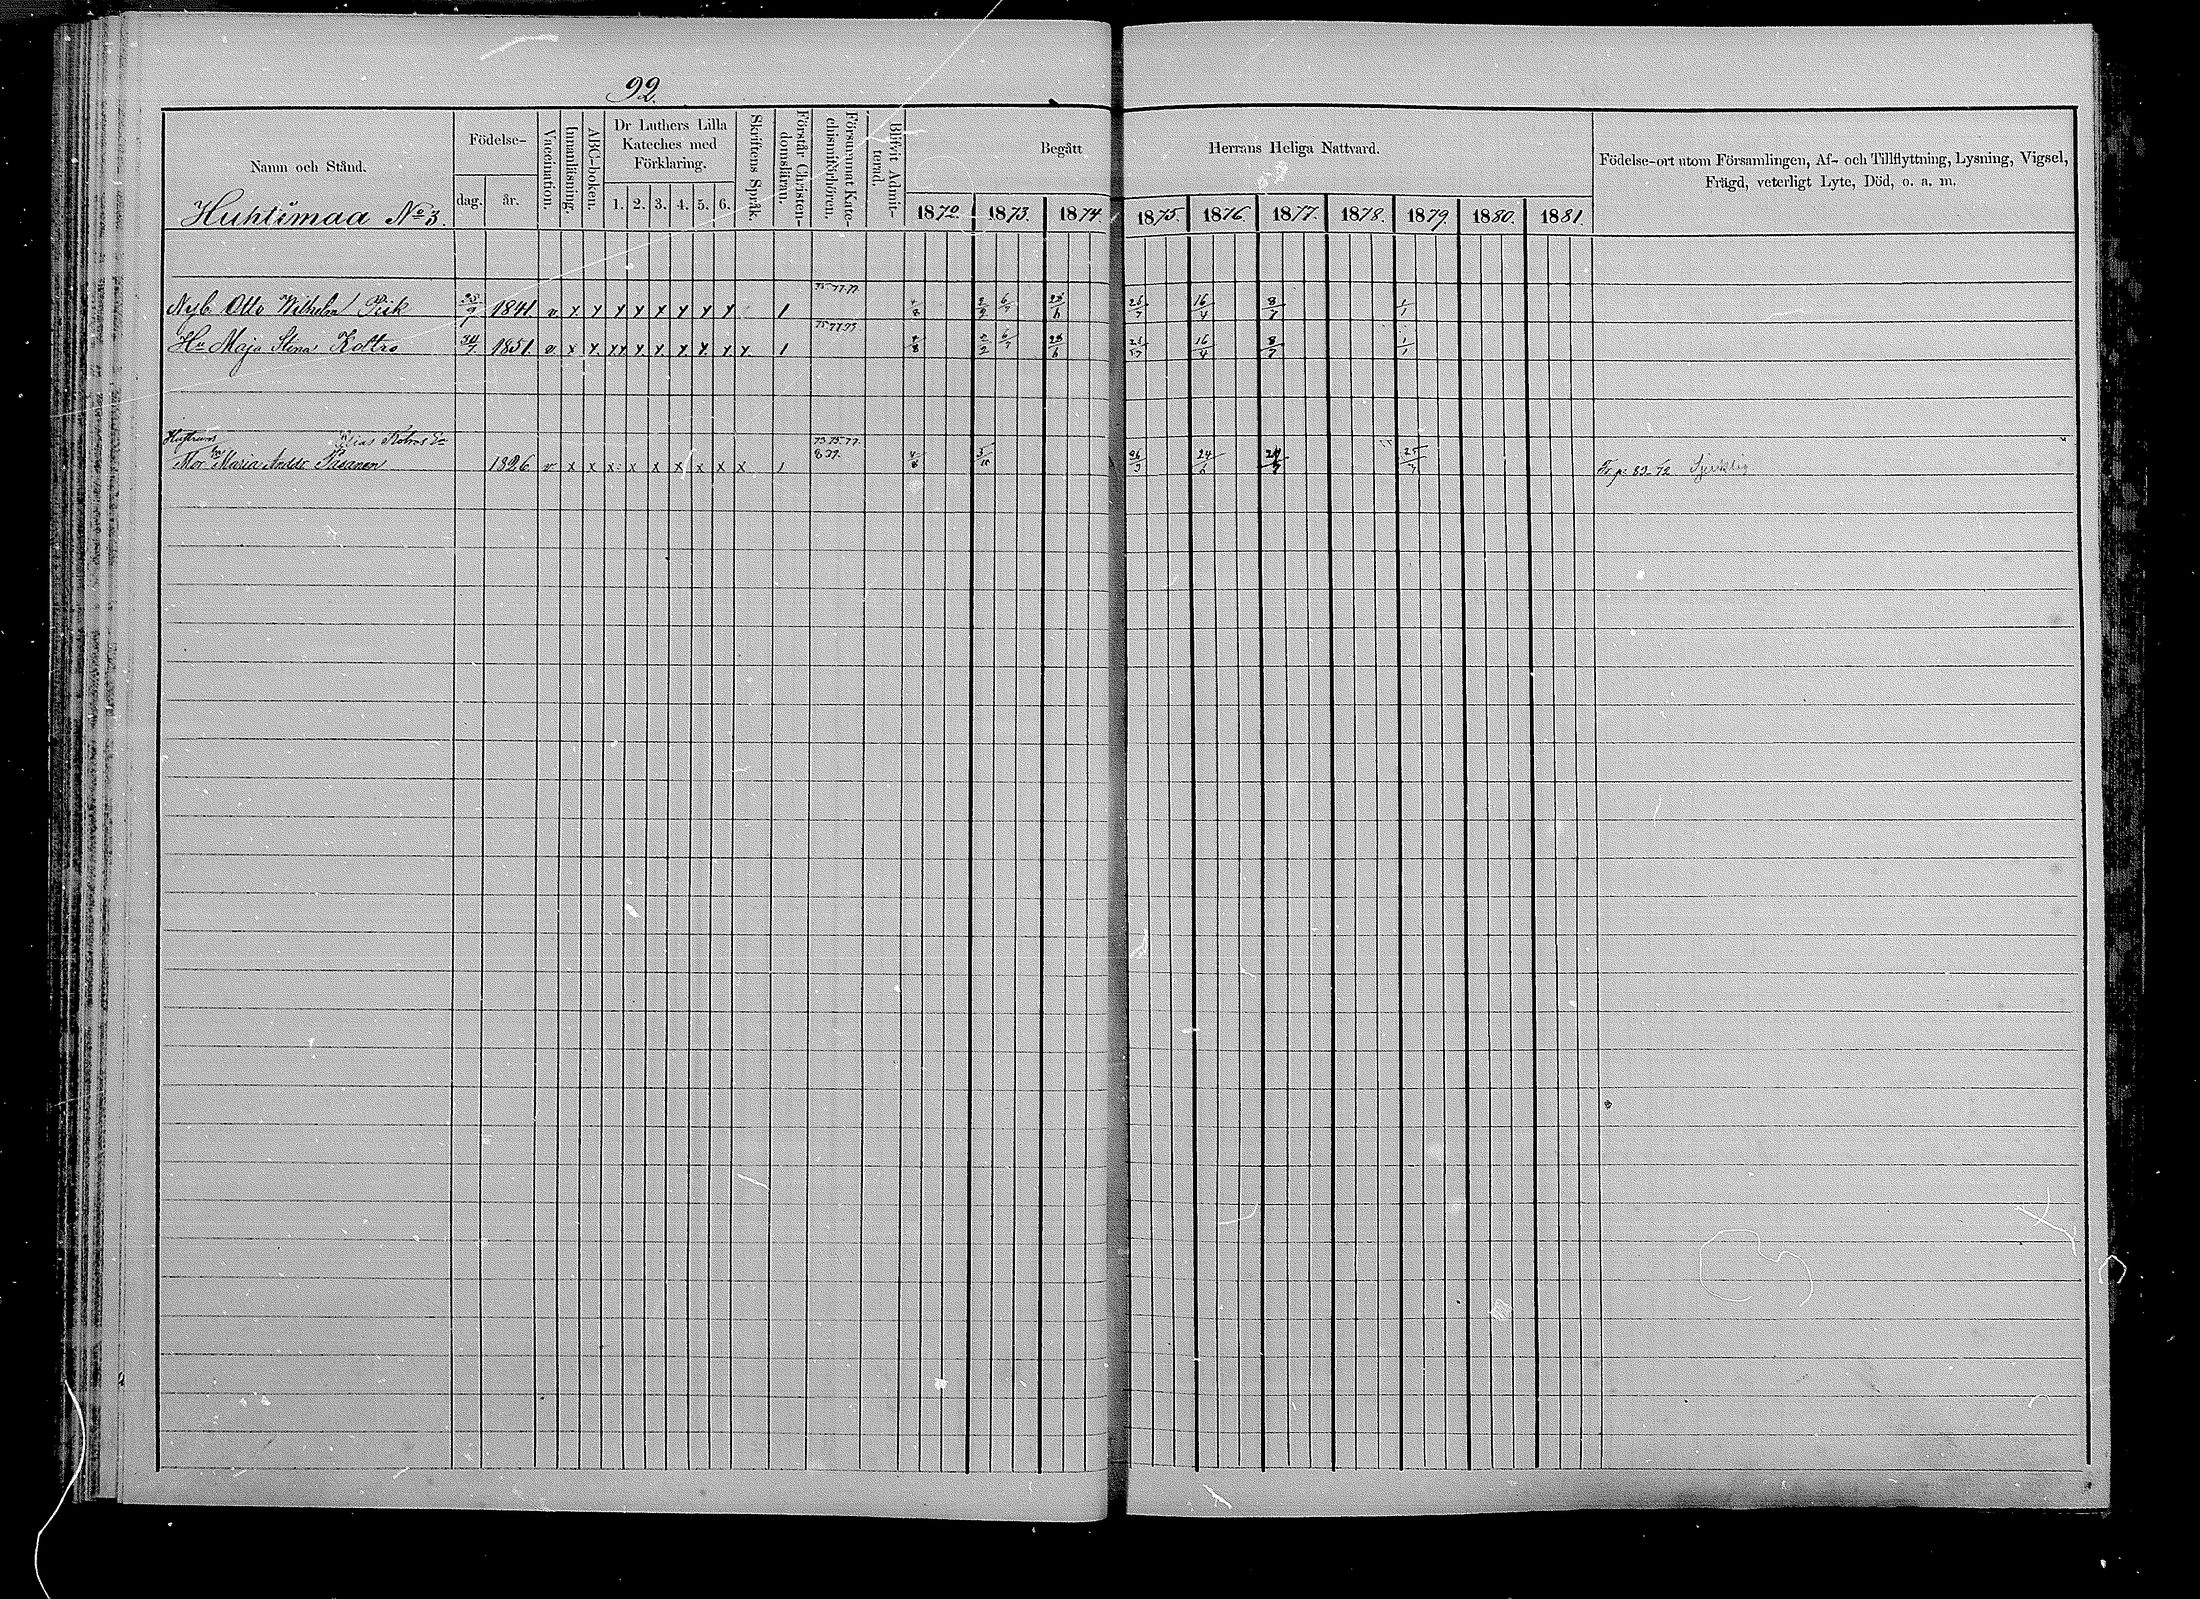 92.
Namn och Stånd.
Huhtimaa No 3.
Födelse-
dag.
år.
Vaccination.
Innanläsning.
ABC-boken.
Dr Luthers Lilla
Kateches med
Förklaring.
1. 2. 3. 4. 5. 6.
Skriftens Språk.
Förstår Christen-
domsläran.
Försummat Kate-
chismiförhören.
Blifvit Admit-
terad.
Begått Herrans Heliga Nattvard.
1872. 1873. 1874. 1875. 1876. 1877. 1878. 1879. 1880. 1881.
Födelse-ort utom Församlingen, Af- och Tillflyttning, Lysning, Vigsel,
Frägd, veterligt Lyte, Död, o. a. m.
75 77 79
Nyb. Otto Wilhelm 1841. v x x x x x x x x 1 2/2 6/7 28/6 16/4 8/7 1/1
Hu Maja Stina Kottro 1851. v x x x x x x x x x 1 2/2 6/7 28/6 16/4 8/7 1/1
Hustruns
73 75 77
Mor Maria Anddr Pasanen 1826 v x x x x x x x x x 1 24/6 Fr p. 83-72 Sjuklig